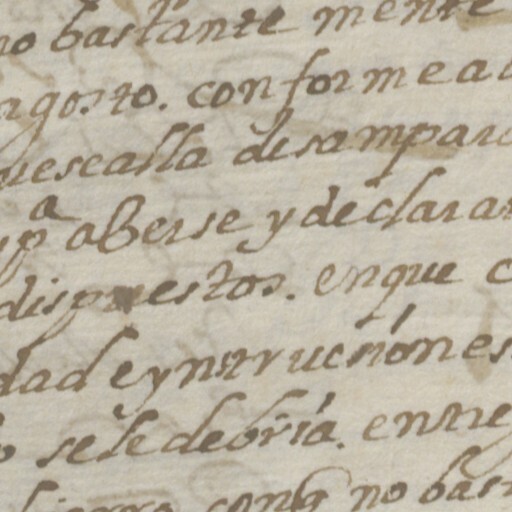 no bastante mente
agosto. conforme a l
que se alla desampara
pa aberse y declarar
dispuestos. en que c
dad e yntruciones
se le debria. entre
conq no bast